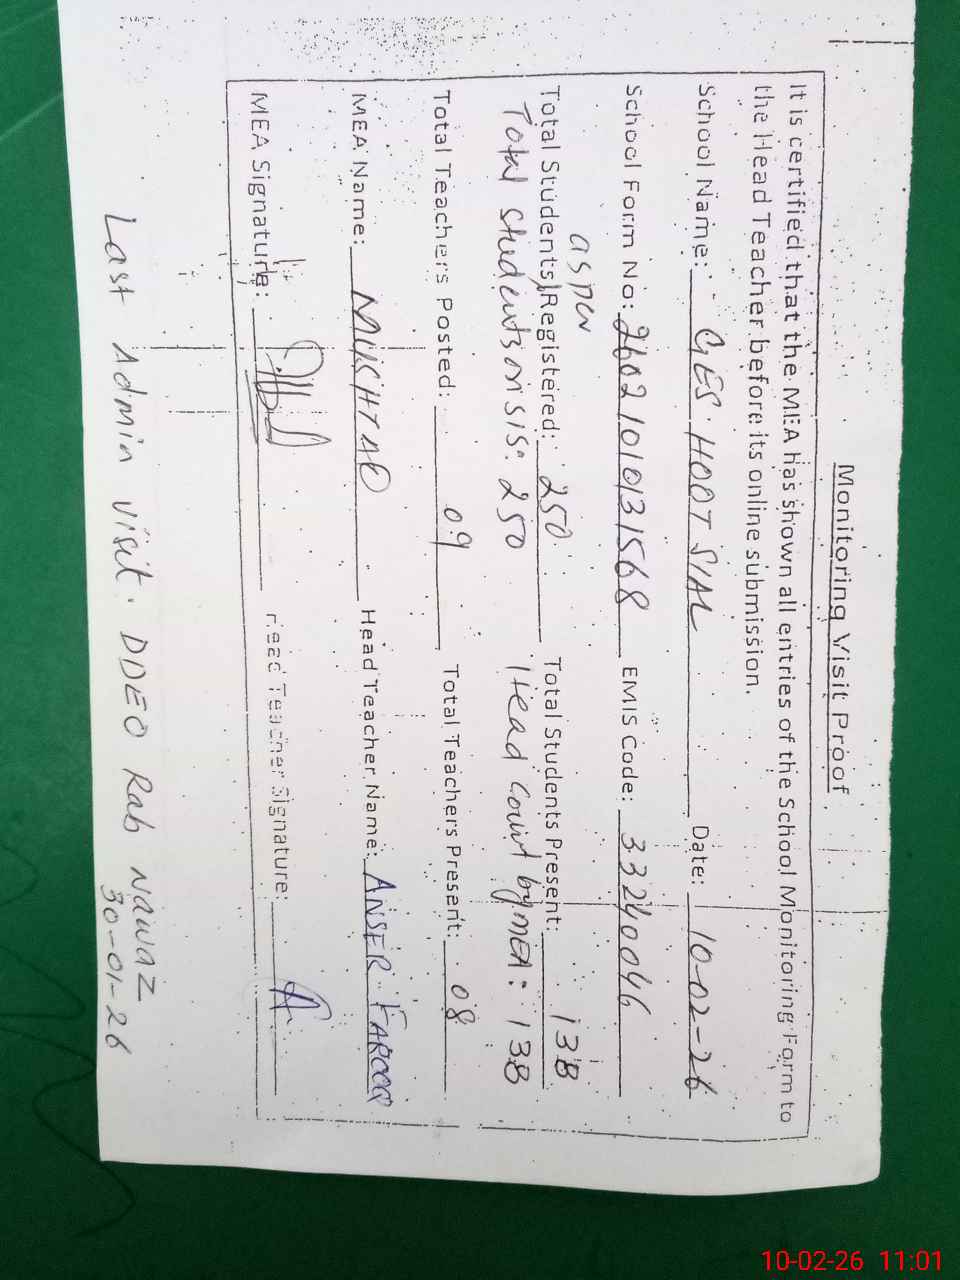 Monitoring Visit Proof
It is certified that the MEA has shown all entries of the School Monitoring Form to
the Head Teacher before its online submission.
School Name: GES HOOT SIAL Date: 10-02-26
School Form No: 26021010131568 EMIS Code: 33240046
as per
Total Students Registered: 250 Total Students Present: 138
Total students on sis: 250 Head Count by MEA: 138
Total Teachers Posted: 09 Total Teachers Present: 08
MEA Name: MUSHTAQ Head Teacher Name: ANSER FAROOQ
MEA Signature: Head Teacher Signature:
Last Admin visit. DDEO Rab Nawaz
30-01-26
10-02-26 11:01